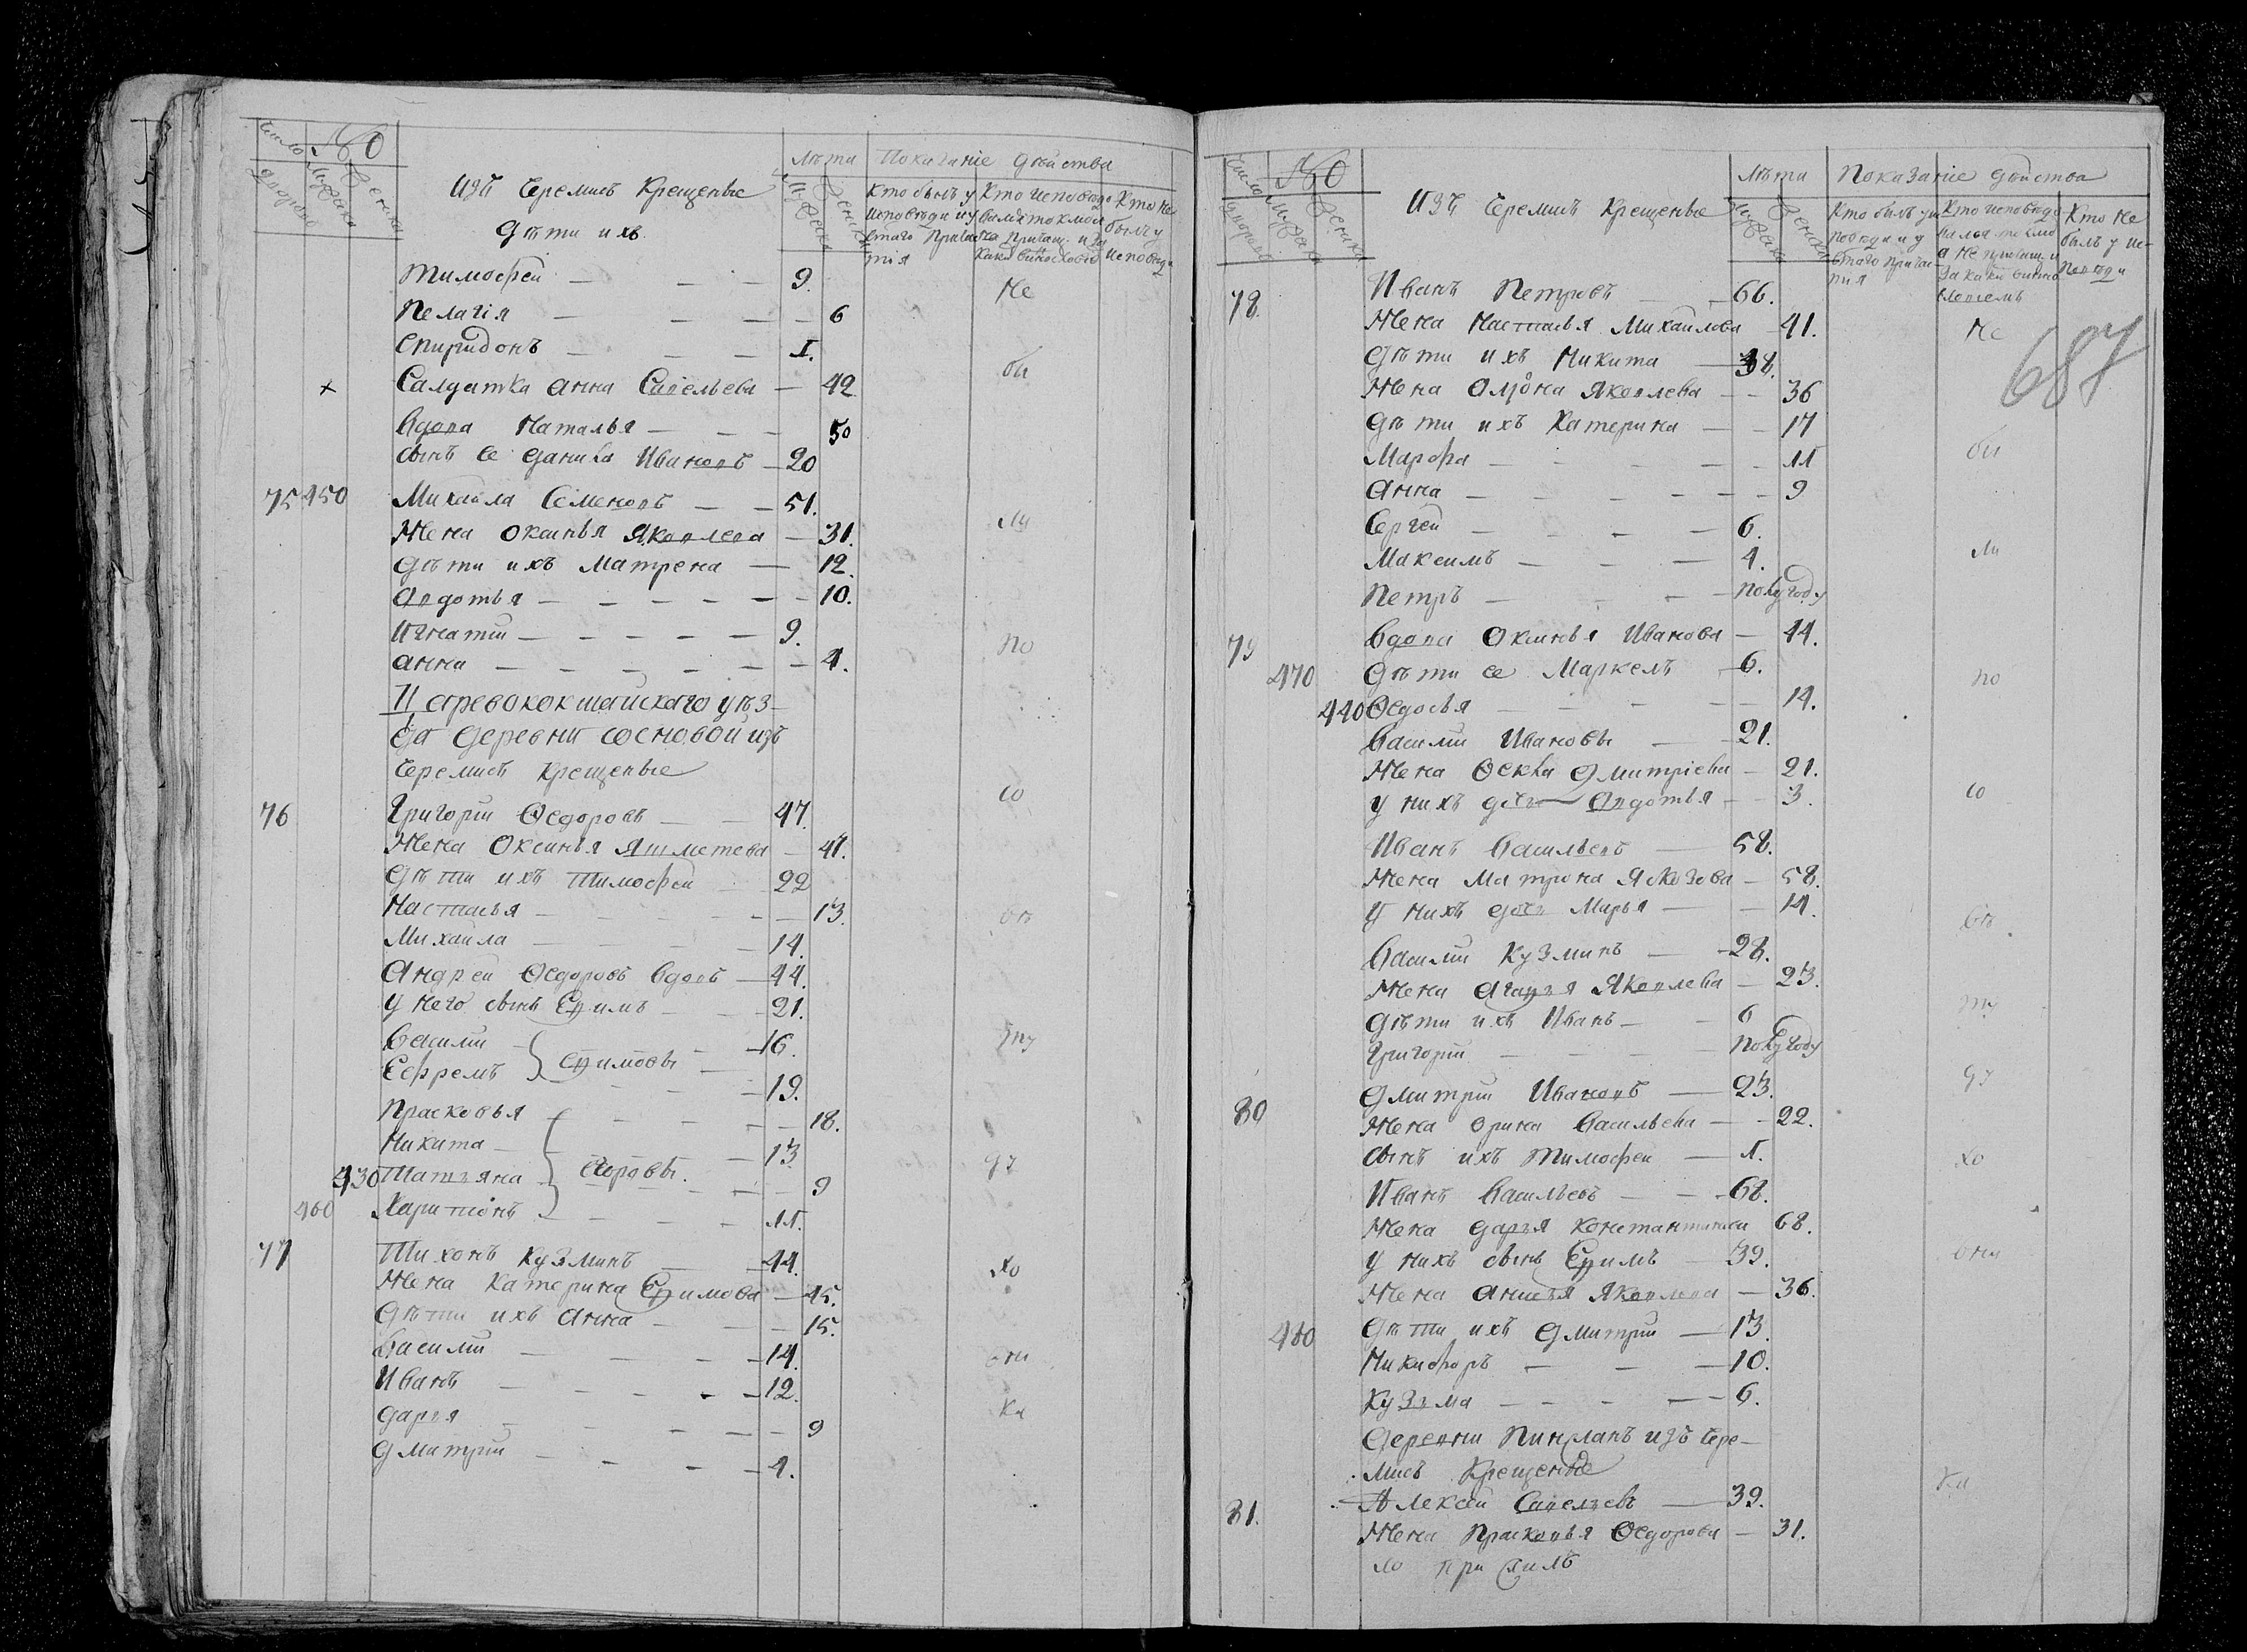 Число дворовъ
№
Мужеска
Женска
Изъ Черемисъ Крещеные
Дѣти ихъ
Лѣта
Мужеска
Женска
Показанiе действа
Кто былъ у исповеди и у святаго причастiя
Кто исповѣдовался токмо а не причащ. и за какимъ винословiемъ
Кто не былъ у исповеди
Тимофей — 9.
Пелагiя — 6
Спиридонъ — 1.
Салдатка Анна Савельева — 42
Вдова Наталья — 50
сынъ ее Данила Ивановъ — 20
75 450 Михаила Семеновъ — 51.
Жена Оксинья Яковлева — 31.
Дѣти ихъ Матрена — 12.
Авдотья — 10.
Игнатiй — 9.
Анна — 4.
Царевококшайскаго уѣз-
да деревни Сосновой изъ
Черемисъ Крещеные
76 Григорiй Ѳедоровъ — 47.
Жена Оксинья Яшметева — 41.
Дѣти ихъ Тимофей — 22
Настасья — 13.
Михаила — 14.
Андрей Ѳедоровъ вдовъ — 44.
У него сынъ Ефимъ — 21.
Василiй — 16.
Ефремъ } Ефимовы — 19.
Прасковья — 18.
Никита — 13
430 Татьяна } — 9
460 Харитонъ — 11.
77 Тихонъ Кузминъ — 44.
Жена Катерина Ефимова — 45.
Дѣти ихъ Анна — 15.
Василiй — 14.
Иванъ — 12.
Дарья — 9
Дмитрiй — 4.
не
бы
ли
по
со
бст
ву
дз
хо
они
ка
Число дворовъ
№
Мужеска
Женска
Изъ Черемисъ Крещеные
Лѣта
Мужеска
Женска
Показанiе действа
Кто не былъ у исповеди
687
78. Иванъ Петровъ — 66.
Жена Настасья Михайлова — 41.
Дѣти ихъ Никита — 38.
Жена Алiона Яковлева — 36
Дѣти ихъ Катерина — 17
Марфа — 11
Анна — 9
Сергей — 6.
Максимъ — 4.
Петръ — полугоду
79 Вдова Оксинья Иванова — 44.
470 Дѣти ее Маркелъ — 6.
440 Ѳедосья — 14.
Василiй Ивановъ — 21.
Жена Ѳекла Дмитрiева — 21.
у нихъ дочь Авдотья — 3.
Иванъ Васильевъ — 58.
Жена Матрона — 58.
У нихъ дочь Марья — 14.
Василiй Кузминъ — 28.
Жена Агафья Яковлева — 23.
Дѣти ихъ Иванъ — 6
Григорiй — полугоду
80 Дмитрiй Ивановъ — 23.
Жена Орина Васильева — 22.
сынъ ихъ Тимофей — 1.
Иванъ Васильевъ — 68.
Жена Дарья Константинова 68.
у нихъ сынъ Ефимъ — 39.
Жена Анисья Яковлева — 36.
480 Дѣти ихъ Дмитрiй — 13.
Никифоръ — 10.
Кузьма — 6.
Деревни изъ Чере-
мисъ Крещеные
81. Алексей Савельевъ — 39.
Жена Прасковья Ѳедорова — 31.
не
бы
ли
по
со